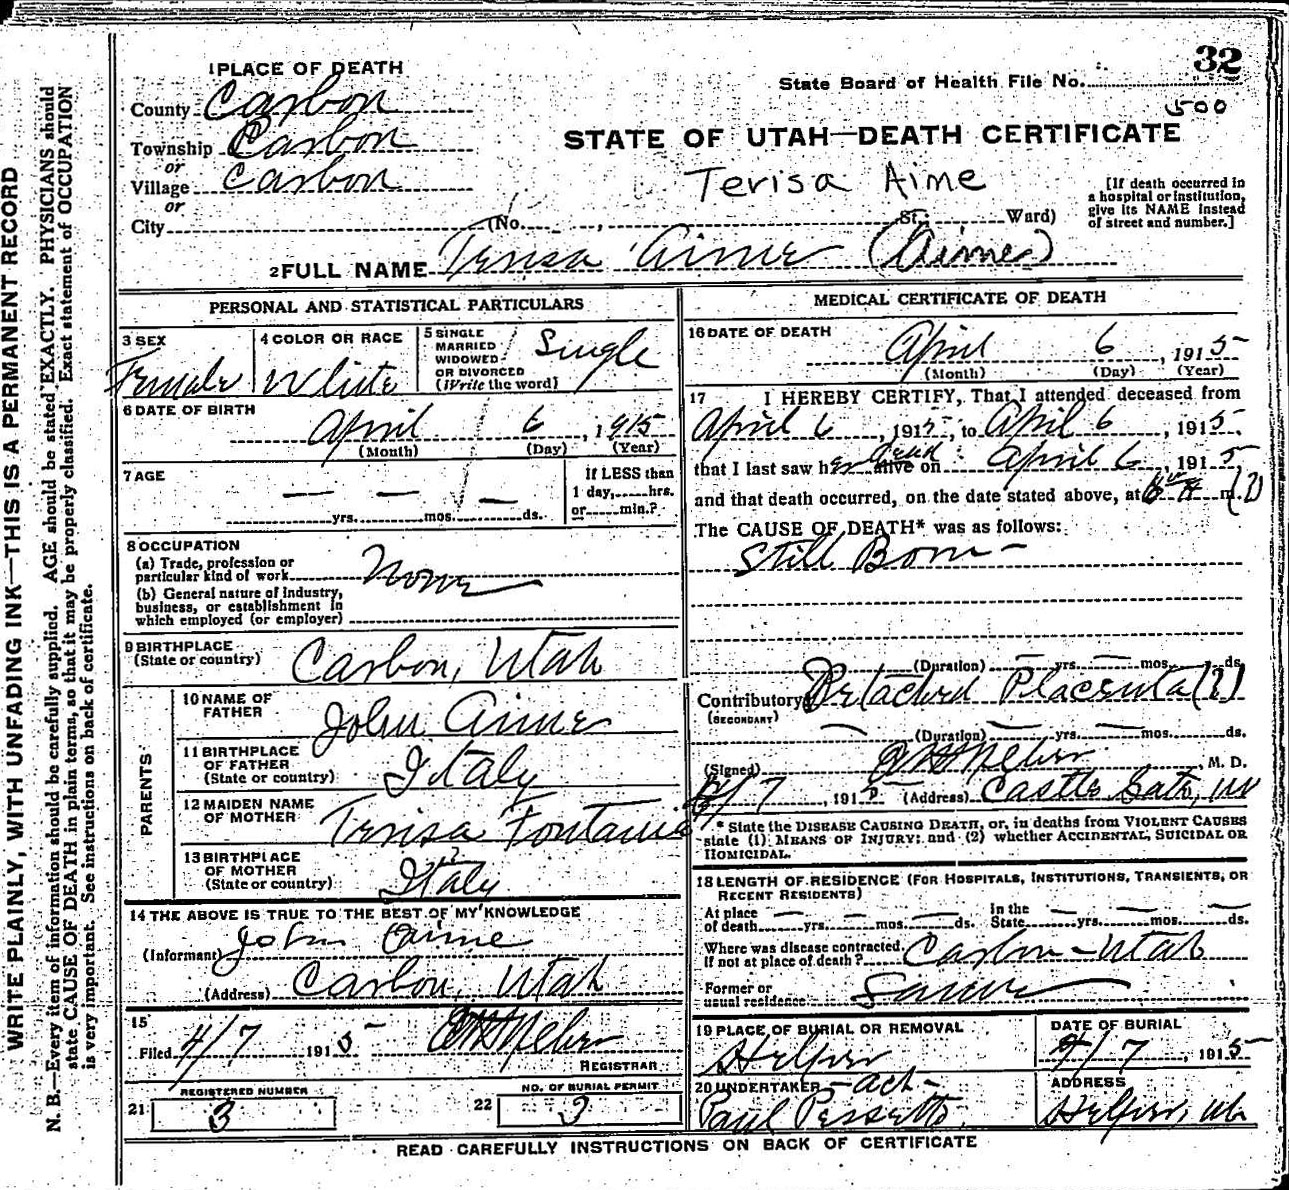 32
1 PLACE OF DEATH
State Board of Health File No.
County Carbon
500
Township Carbon
STATE OF UTAH—DEATH CERTIFICATE
or
Village Carbon
Terisa Aime
[If death occurred in a hospital or institution, give its NAME instead of street and number.]
or
City (No. , St.; Ward)
2 FULL NAME Terisa Aime (Aime)
PERSONAL AND STATISTICAL PARTICULARS
3 SEX Female
4 COLOR OR RACE White
5 SINGLE MARRIED WIDOWED OR DIVORCED (Write the word) Single
6 DATE OF BIRTH April 6, 1915
(Month) (Day) (Year)
7 AGE — — —
yrs. mos. ds.
If LESS than
1 day, hrs.
or min.?
8 OCCUPATION
(a) Trade, profession or
particular kind of work None
(b) General nature of industry,
business, or establishment in
which employed (or employer)
9 BIRTHPLACE
(State or country) Carbon, Utah
PARENTS
10 NAME OF
FATHER John Aime
11 BIRTHPLACE
OF FATHER
(State or country) Italy
12 MAIDEN NAME
OF MOTHER Terisa
13 BIRTHPLACE
OF MOTHER
(State or country) Italy
14 THE ABOVE IS TRUE TO THE BEST OF MY KNOWLEDGE
(Informant) John Aime
(Address) Carbon, Utah
15
Filed 4/7 1915
REGISTRAR
REGISTERED NUMBER
21 3
NO. OF BURIAL PERMIT
22 3
MEDICAL CERTIFICATE OF DEATH
16 DATE OF DEATH
April 6, 1915
(Month) (Day) (Year)
17 I HEREBY CERTIFY, That I attended deceased from
April 6, 1915, to April 6, 1915,
that I last saw her alive on April 6, 1915,
dead
and that death occurred, on the date stated above, at 6 m.
The CAUSE OF DEATH* was as follows:
Still Born —
(Duration) — yrs. — mos. ds.
Contributory Detached Placenta (?)
(SECONDARY)
(Duration) — yrs. — mos. ds.
(Signed) , M. D.
4/7, 1915 (Address) Castle Gate, Ut
* State the DISEASE CAUSING DEATH, or, in deaths from VIOLENT CAUSES
state (1) MEANS OF INJURY: and (2) whether ACCIDENTAL, SUICIDAL OR
HOMICIDAL.
18 LENGTH OF RESIDENCE (FOR HOSPITALS, INSTITUTIONS, TRANSIENTS, OR
RECENT RESIDENTS)
At place
of death — yrs. — mos. — ds.
In the
State — yrs. — mos. — ds.
Where was disease contracted,
If not at place of death? Carbon - Utah
Former or
usual residence Same
19 PLACE OF BURIAL OR REMOVAL
Helper
DATE OF BURIAL
4/7, 1915
20 UNDERTAKER - act -
Paul Pessetto
ADDRESS
Helper, Ut
READ CAREFULLY INSTRUCTIONS ON BACK OF CERTIFICATE
WRITE PLAINLY, WITH UNFADING INK—THIS IS A PERMANENT RECORD
N. B.—Every item of information should be carefully supplied. AGE should be stated EXACTLY. PHYSICIANS should
state CAUSE OF DEATH in plain terms, so that it may be properly classified. Exact statement of OCCUPATION
is very important. See instructions on back of certificate.